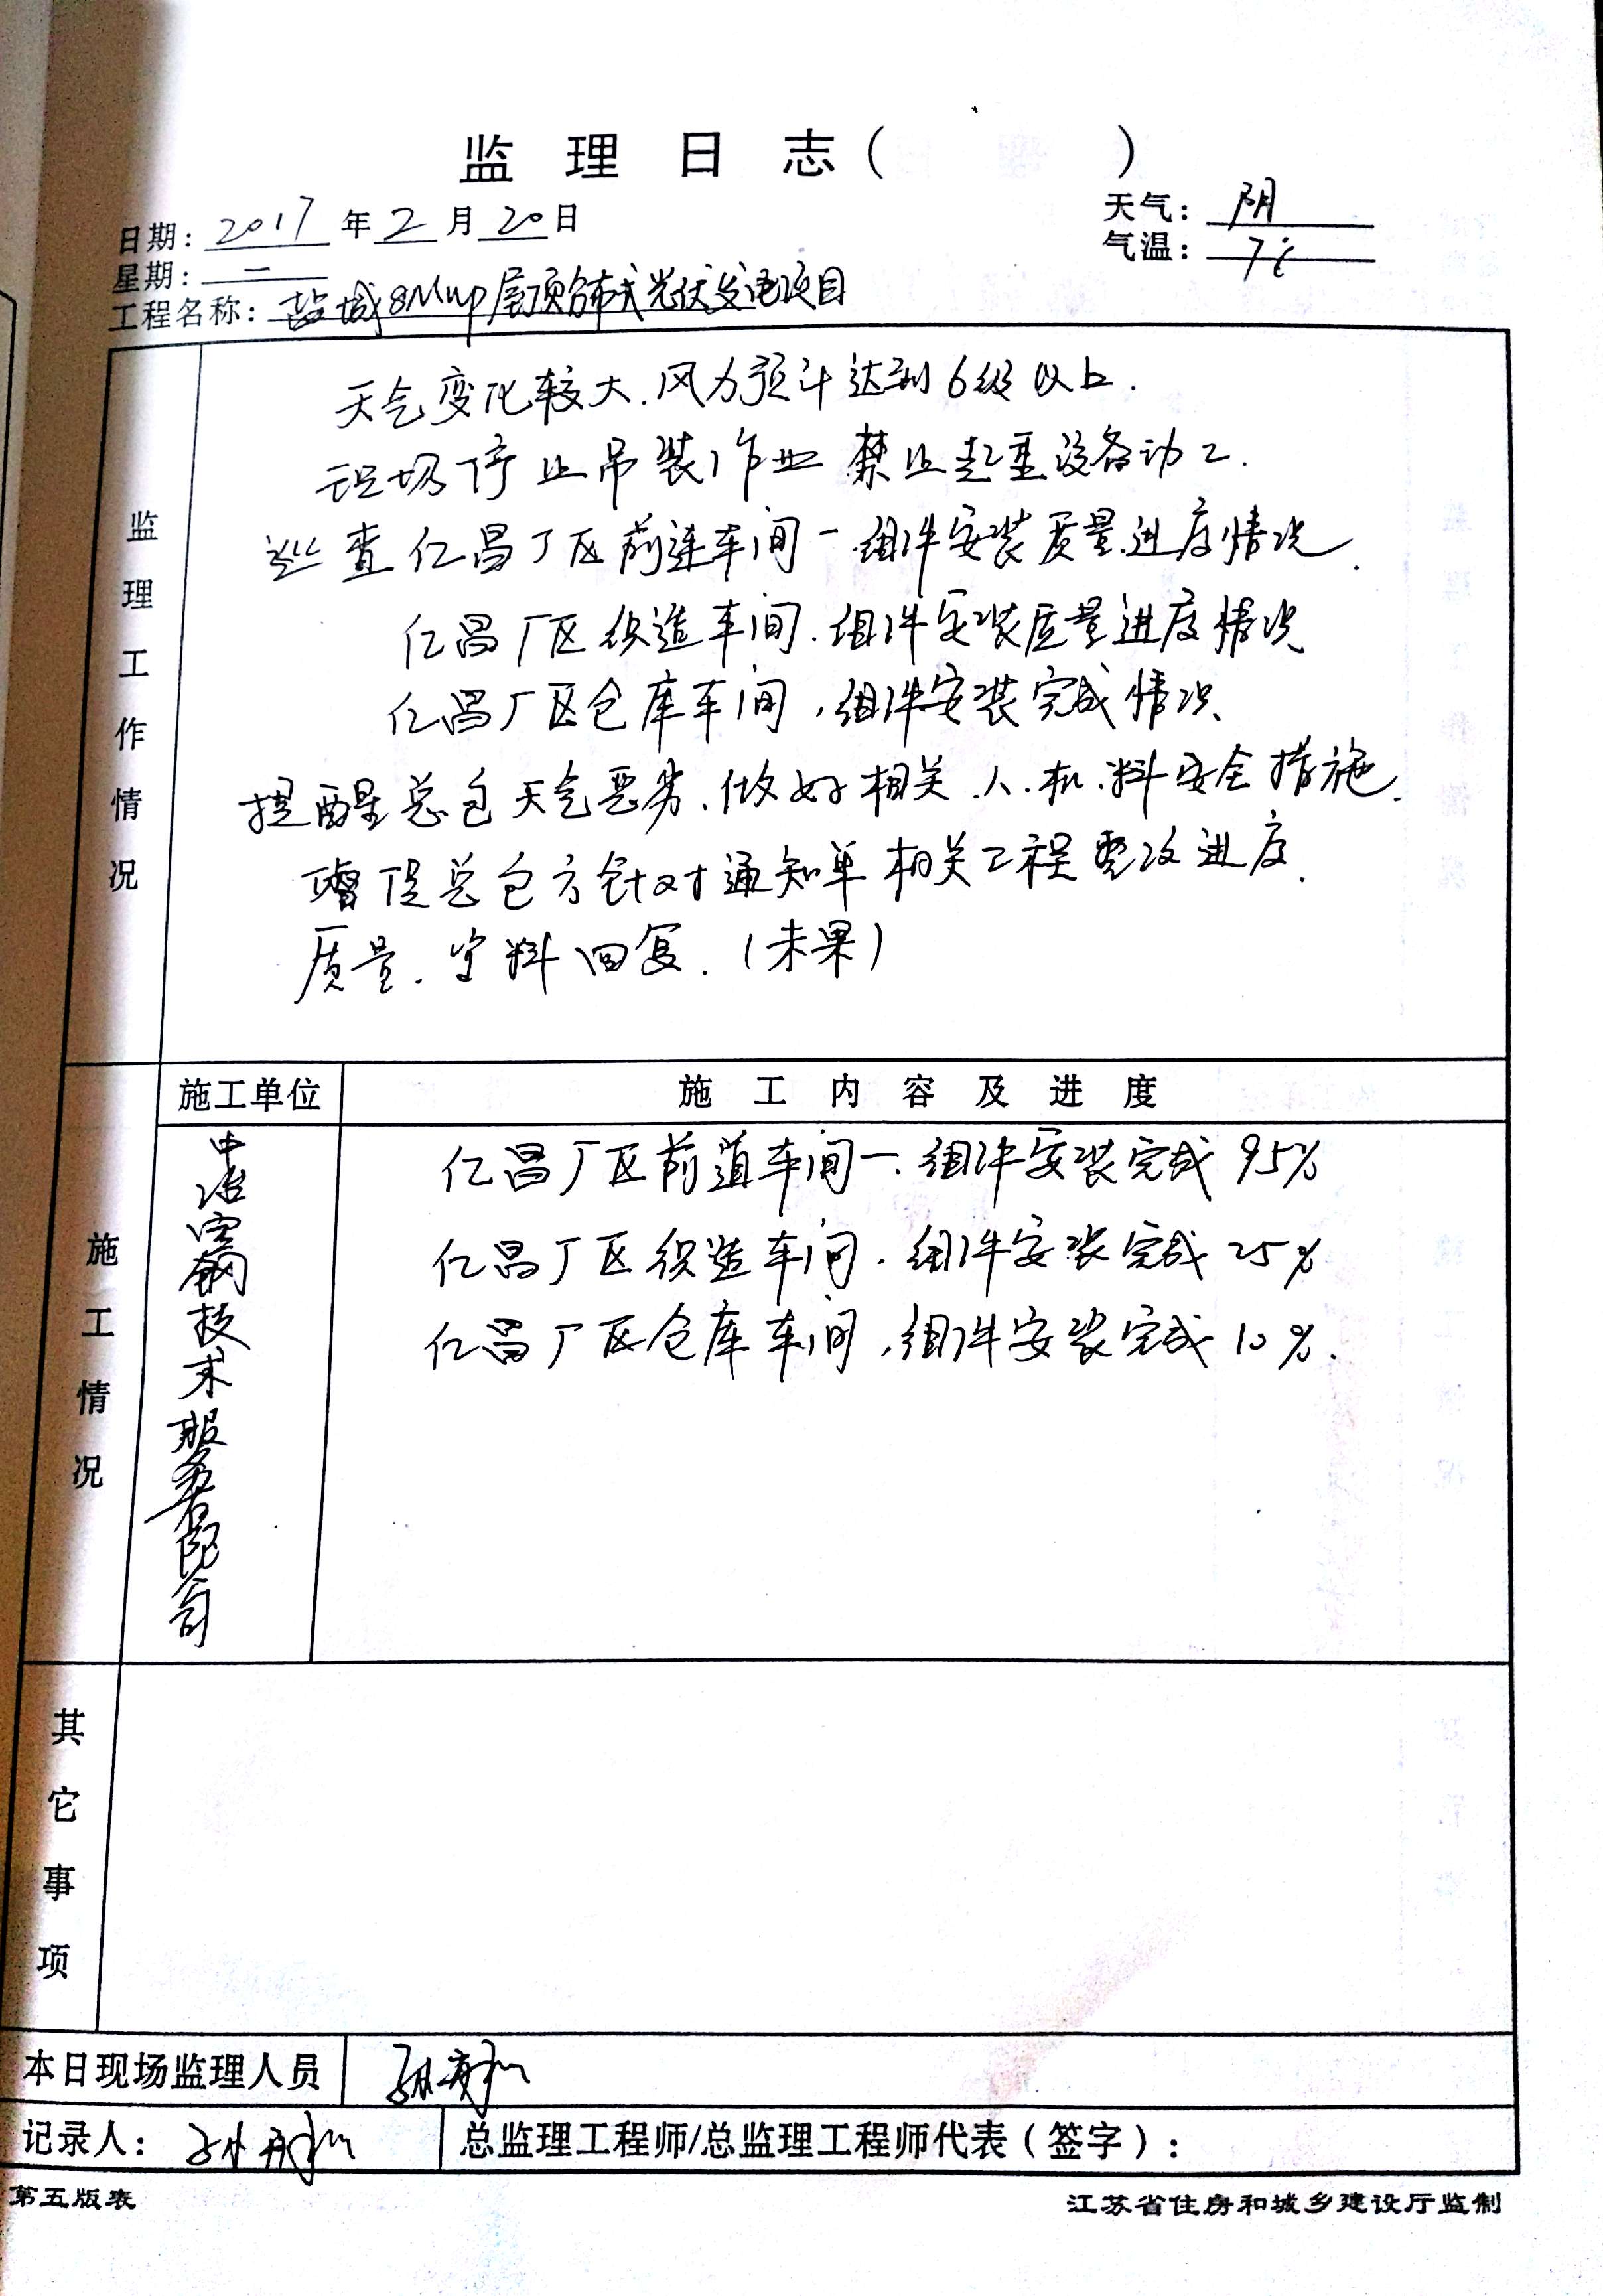 监理日志（ ）
日期：2017年2月20日
天气：阴
星期：二
气温：7℃
工程名称：盐城8MWp屋顶分布式光伏发电项目
监理工作情况
天气变化较大.风力预计达到6级以上.
现场停止吊装作业 禁止起重设备动工.
巡查仁昌厂区前道车间一.组件安装质量.进度情况.
仁昌厂区织造车间.组件安装质量进度情况
仁昌厂区仓库车间,组件安装完成情况
提醒总包天气恶劣.做好相关.人.机.料安全措施.
督促总包方针对通知单相关工程整改进度.
质量.资料回复.(未果)
施工情况
施工单位
施工内容及进度
中冶宝钢技术服务有限公司
仁昌厂区前道车间一.组件安装完成95%
仁昌厂区织造车间.组件安装完成25%
仁昌厂区仓库车间,组件安装完成10%.
其它事项
本日现场监理人员
记录人：
总监理工程师/总监理工程师代表（签字）：
第五版表
江苏省住房和城乡建设厅监制